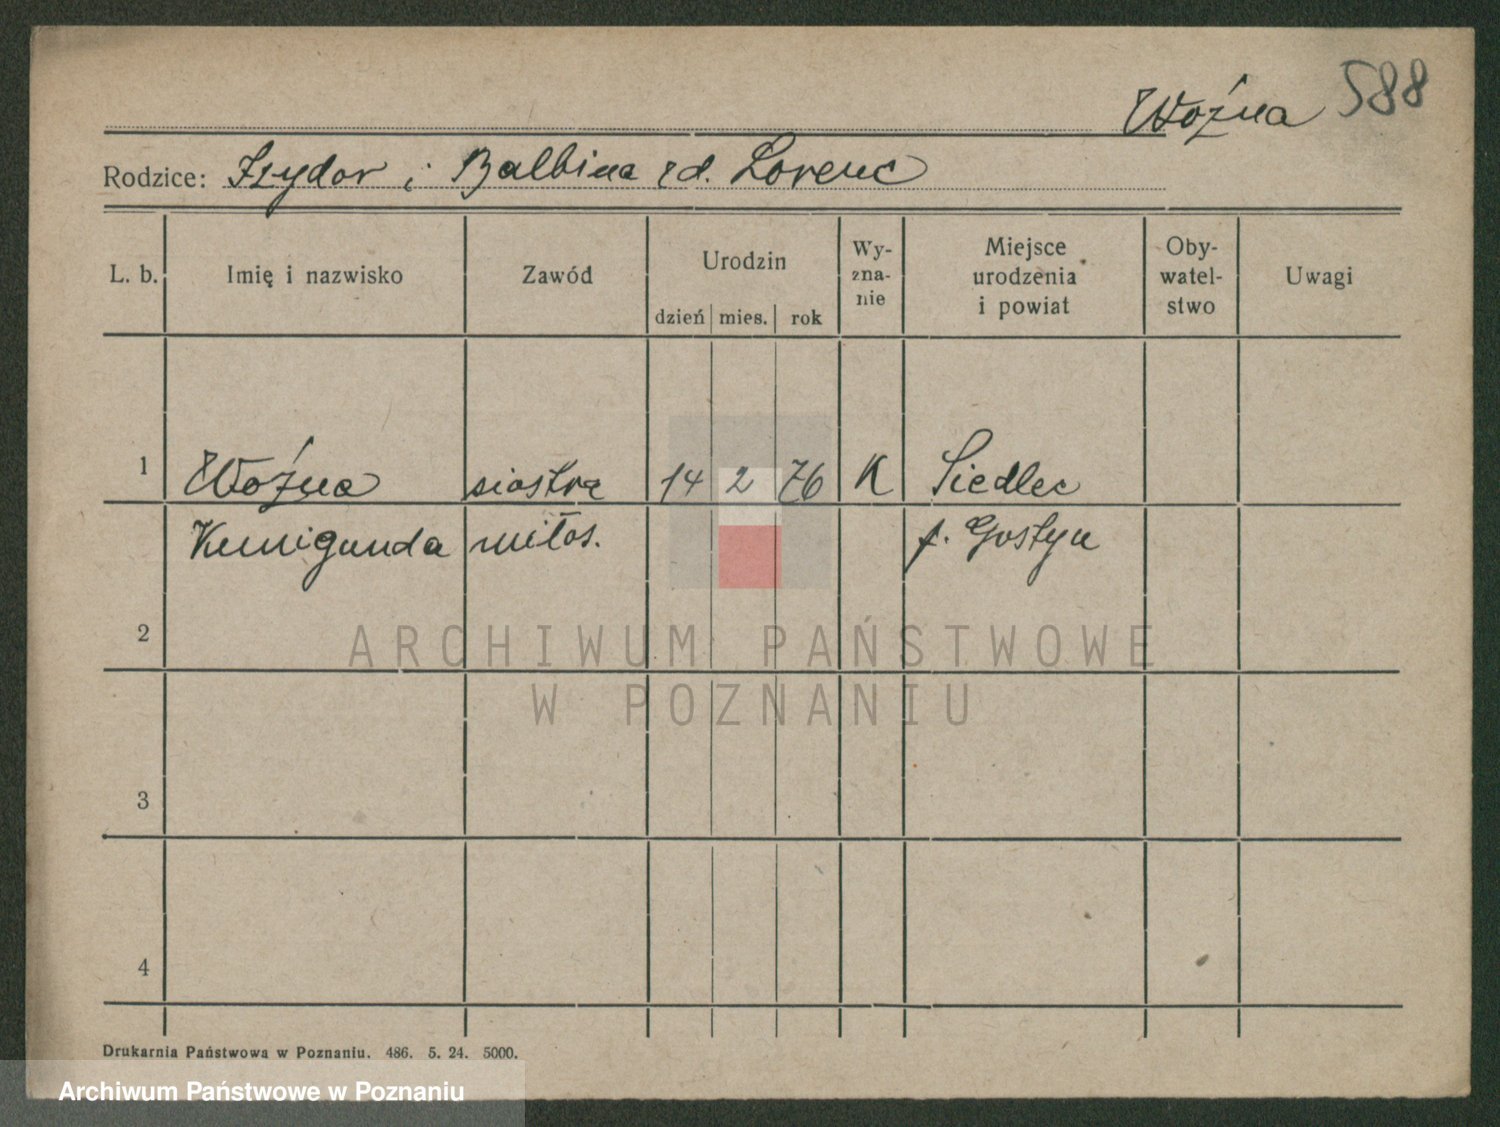 Woźna 588
Rodzice: Izydor i Balbina zd. Lorenc
L. b. Imię i nazwisko Zawód Urodzin dzień mies. rok Wy-zna-nie Miejsce urodzenia i powiat Oby-watel-stwo Uwagi
1 Woźna siostra 14 2 76 K Siedlec
Kunigunda miłos. p. Gostyn
2
ARCHIWUM PAŃSTWOWE
W POZNANIU
3
4
Drukarnia Państwowa w Poznaniu. 486. 5. 24. 5000.
Archiwum Państwowe w Poznaniu